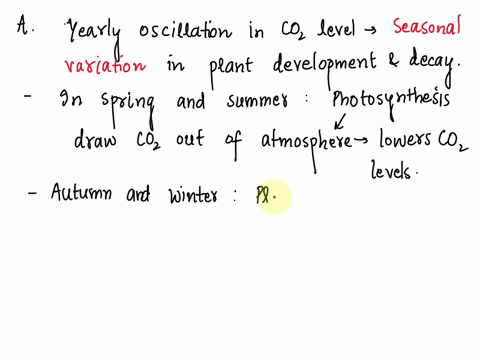 A. Yearly oscillation in CO₂ level → Seasonal
variation in plant development & decay.
- In spring and summer : Photosynthesis
draw CO₂ out of atmosphere → lowers CO₂
levels.
- Autumn and winter : Pl